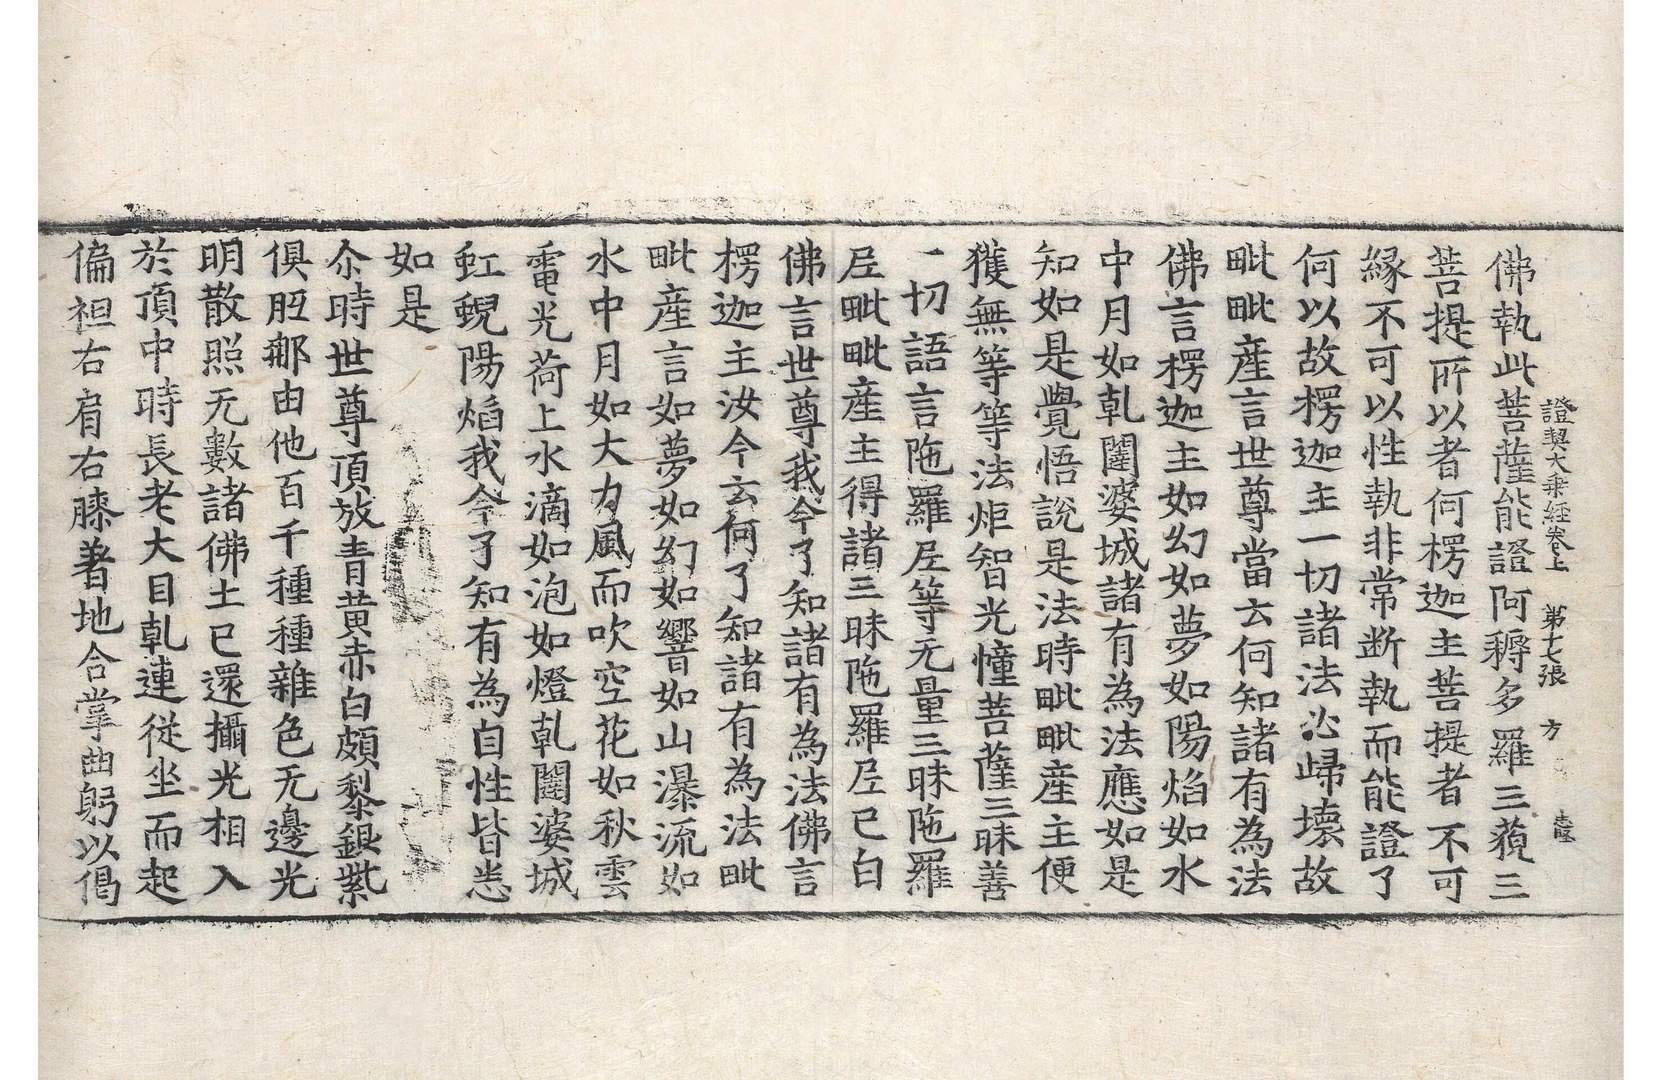 證契大乘経卷上　第十七張　方
佛執此菩薩能證阿耨多羅三藐三
菩提所以者何楞迦主菩提者不可
縁不可以性執非常断執而能證了
何以故楞迦主一切諸法必歸壞故
毗毗産言世尊當云何知諸有為法
佛言楞迦主如幻如夢如陽焰如水
中月如乹闥婆城諸有為法應如是
知如是覺悟說是法時毗毗産主便
獲無等等法炬智光幢菩薩三昧善
一切語言陁羅尼等无量三昧陁羅
尼毗毗産主得諸三昧陁羅尼已白
佛言世尊我今了知諸有為法佛言
楞迦主汝今云何了知諸有為法毗
毗産言如夢如幻如響如山瀑流如
水中月如大力風而吹空花如秋雲
電光荷上水滴如泡如燈乹闥婆城
虹蜺陽焰我今了知有為自性皆悉
如是
尒時世尊頂放青黄赤白頗黎銀紫
俱胝那由他百千種種雜色无邊光
明散照无數諸佛土已還攝光相入
於頂中時長老大目乹連従坐而起
偏袒右肩右膝著地合掌曲躬以偈